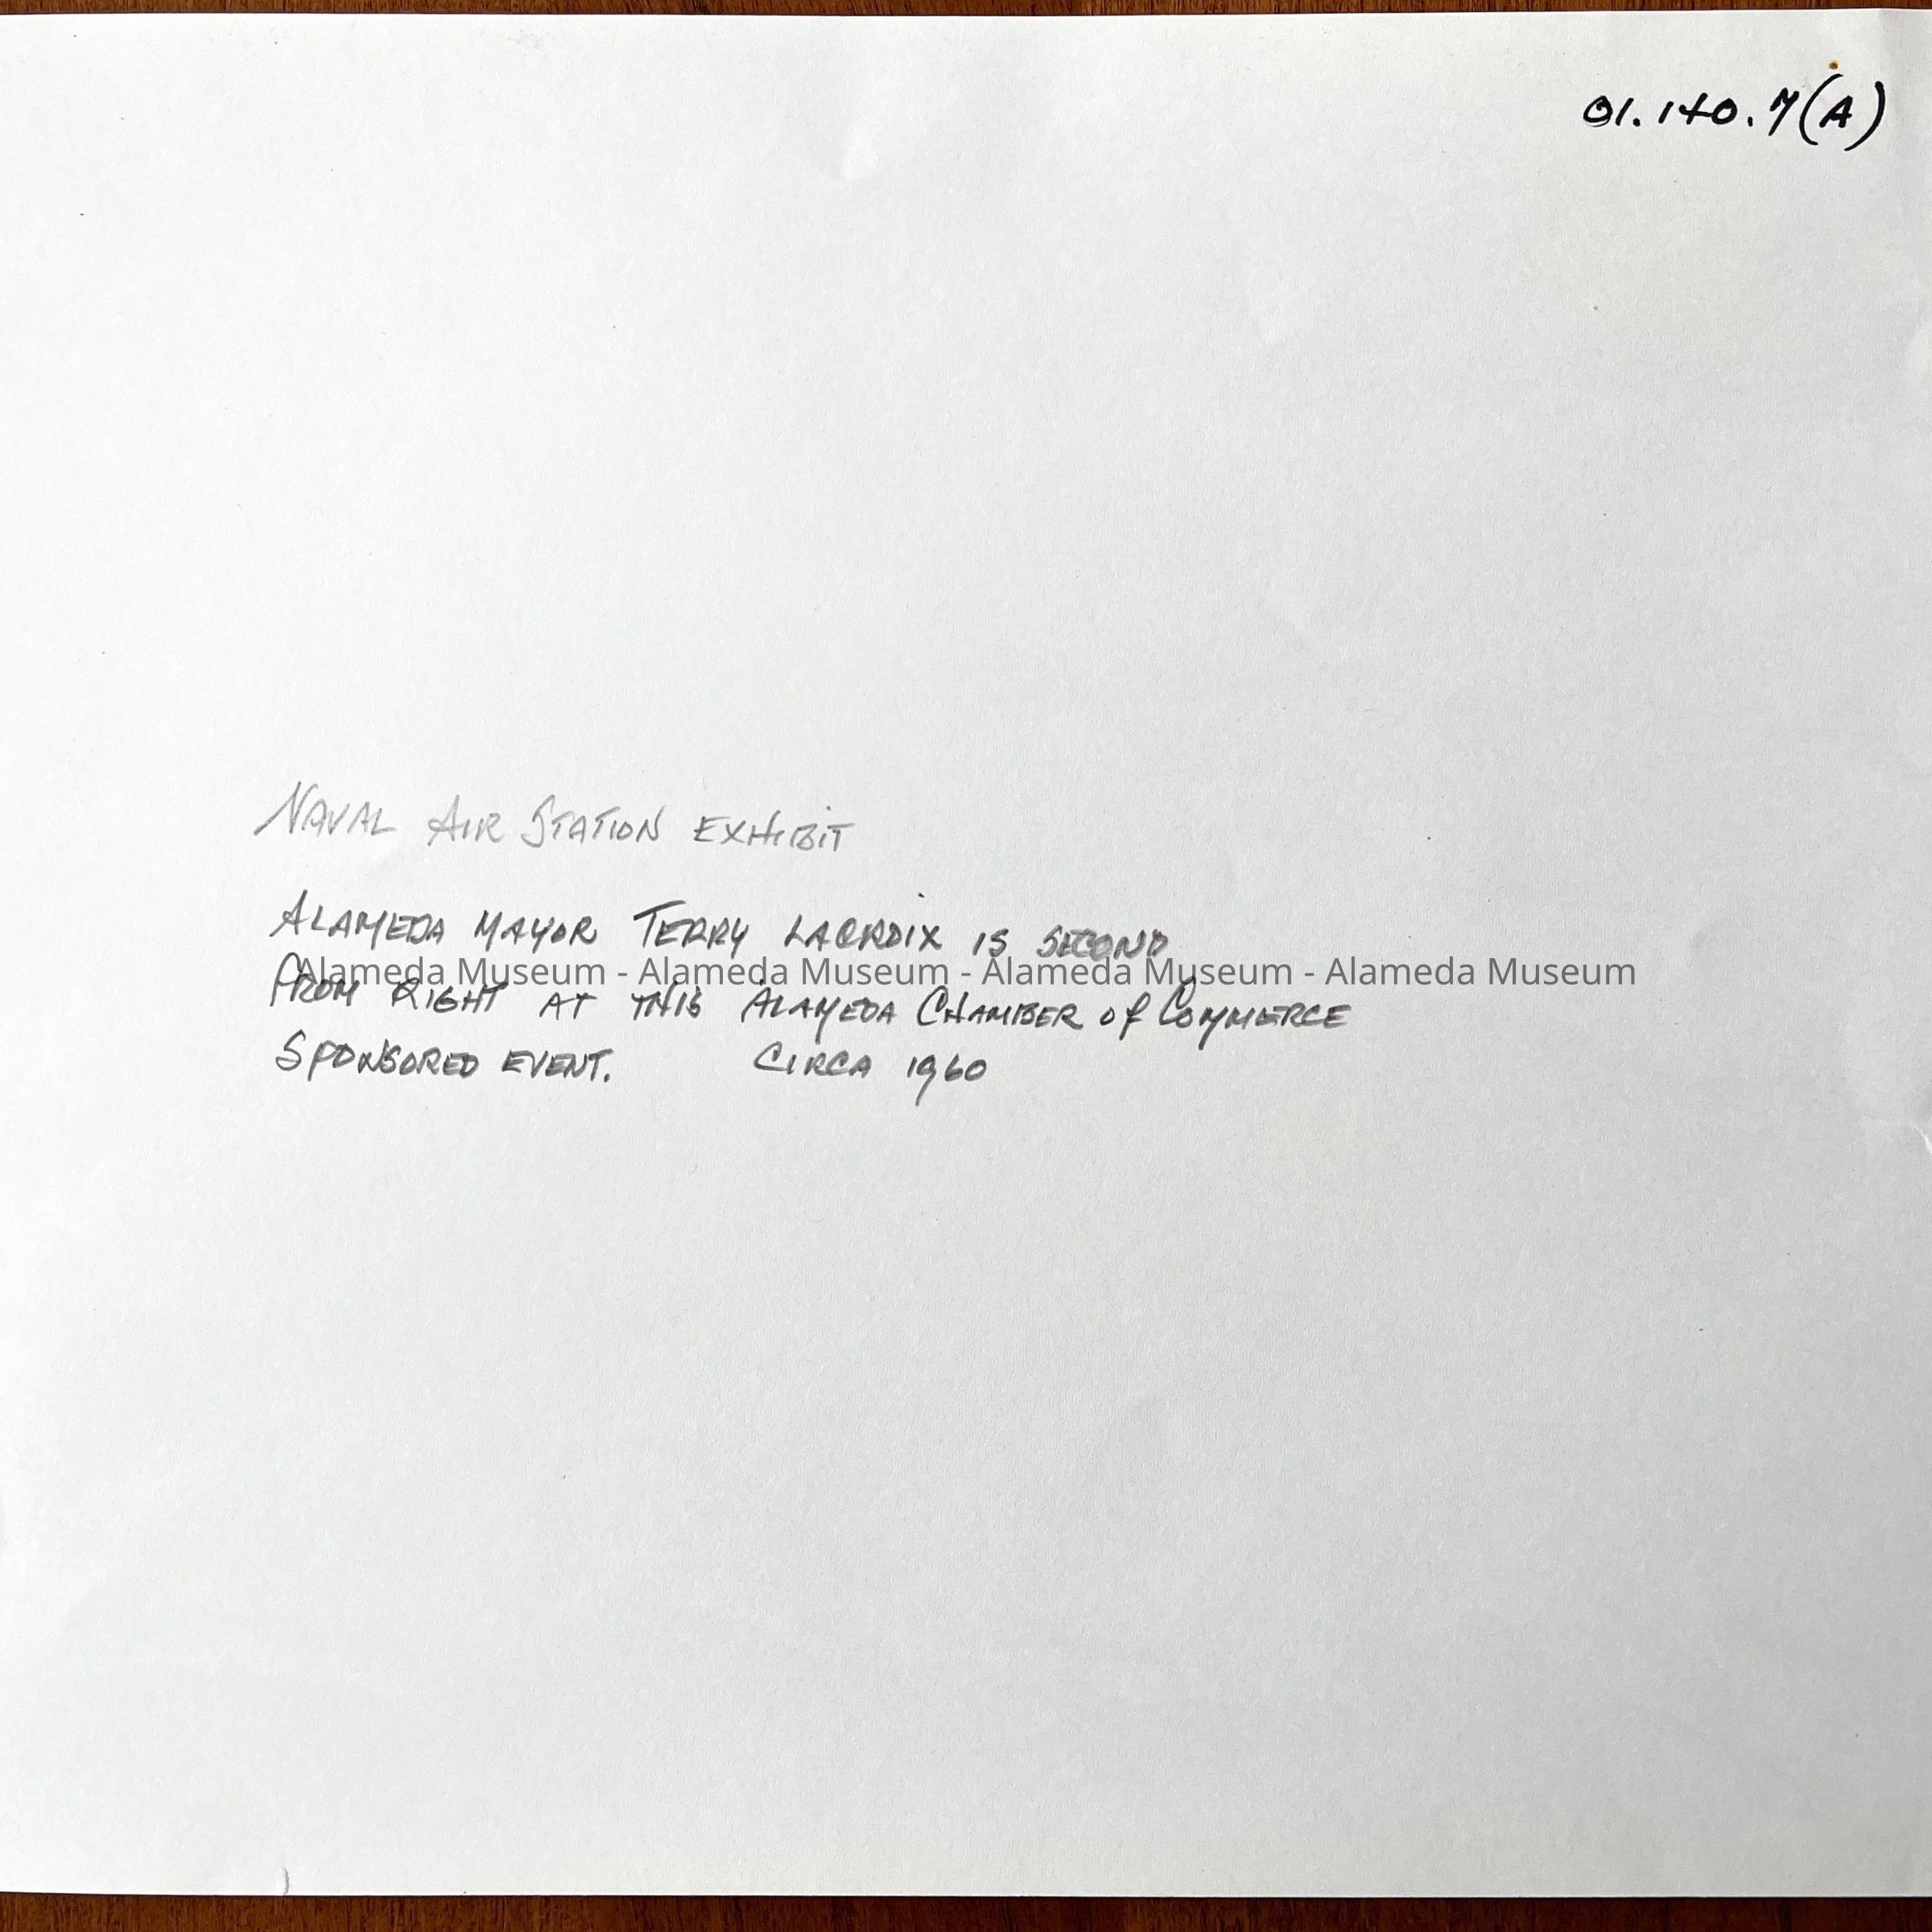 01.140.7(A)
NAVAL AIR STATION EXHIBIT
ALAMEDA MAYOR TERRY LACROIX IS SECOND
Alameda Museum - Alameda Museum - Alameda Museum - Alameda Museum
FROM RIGHT AT THIS ALAMEDA CHAMBER of COMMERCE
SPONSORED EVENT. CIRCA 1960